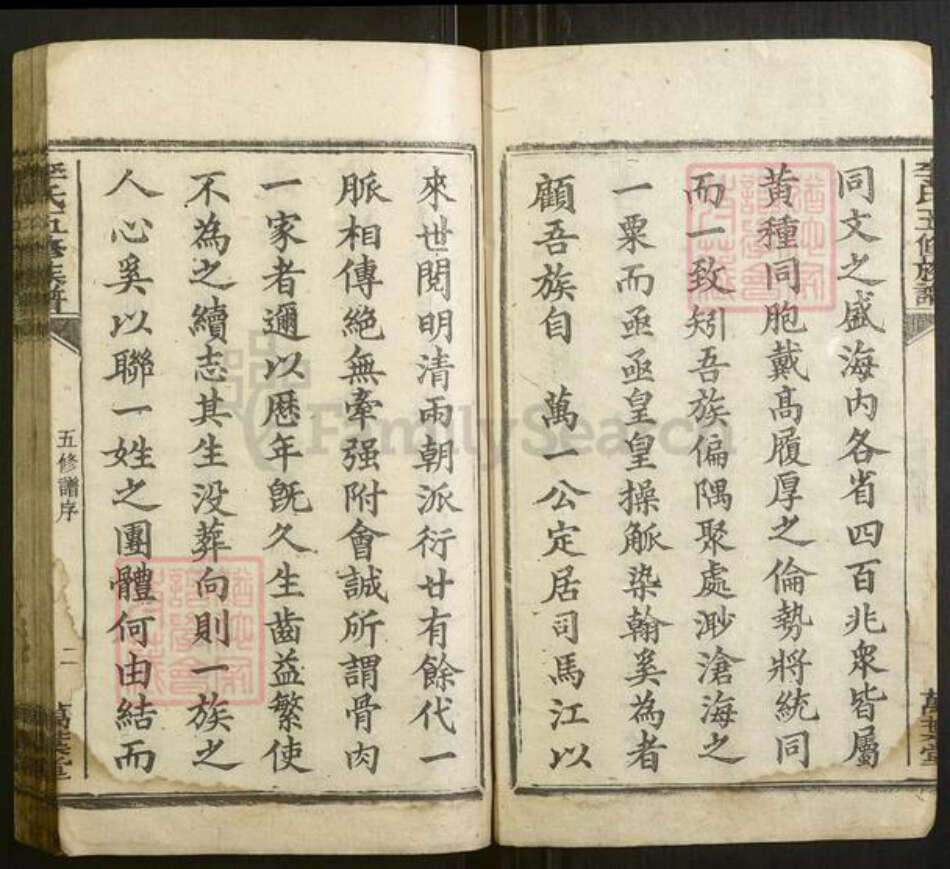 同文之盛海內各省四百兆衆皆屬
黃種同胞戴高履厚之倫勢將統同
而一致矧吾族偏隅聚處渺滄海之
一粟而亟亟皇皇操觚染翰奚為者
顧吾族自 萬一公定居司馬江以
來世閱明清兩朝派衍廿有餘代一
脈相傳絕無牽强附會誠所謂骨肉
一家者邇以歷年旣久生齒益繁使
不為之續志其生没葬向則一族之
人心奚以聯一姓之團體何由結而
李氏五修族譜
五修譜序
二
FamilySearch